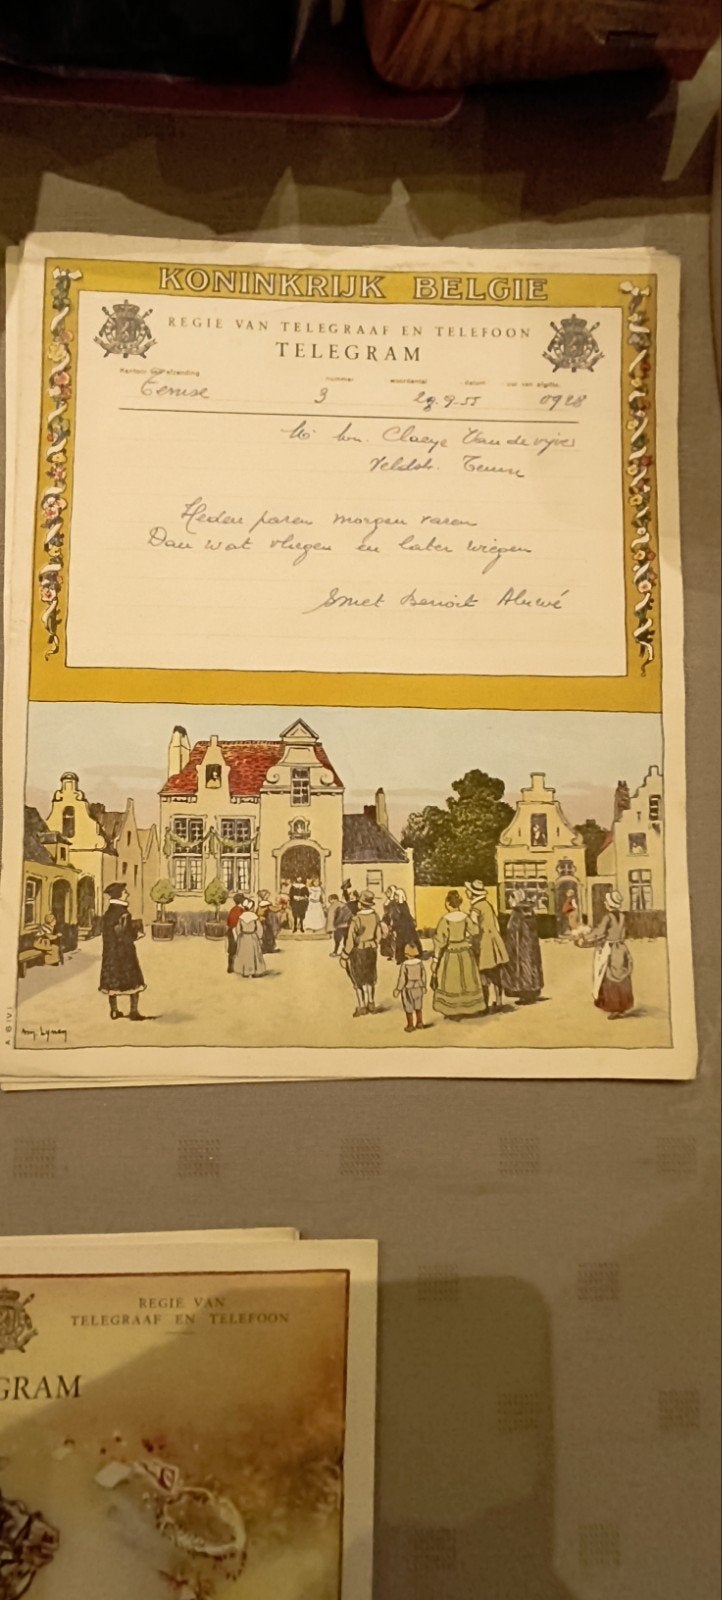 KONINKRIJK BELGIE
REGIE VAN TELEGRAAF EN TELEFOON
TELEGRAM
Kantoor van afzending nummer woordental datum uur van afgifte
Temse 3 29.9.55 0928
Mr Mn. Claeys Van de Vijver
Veldstr. Temse
Heden paren morgen varen
Dan wat vliegen en later wiegen
Smet Benoit
Am. Lynen
A. 6 (V)
REGIE VAN
TELEGRAAF EN TELEFOON
GRAM